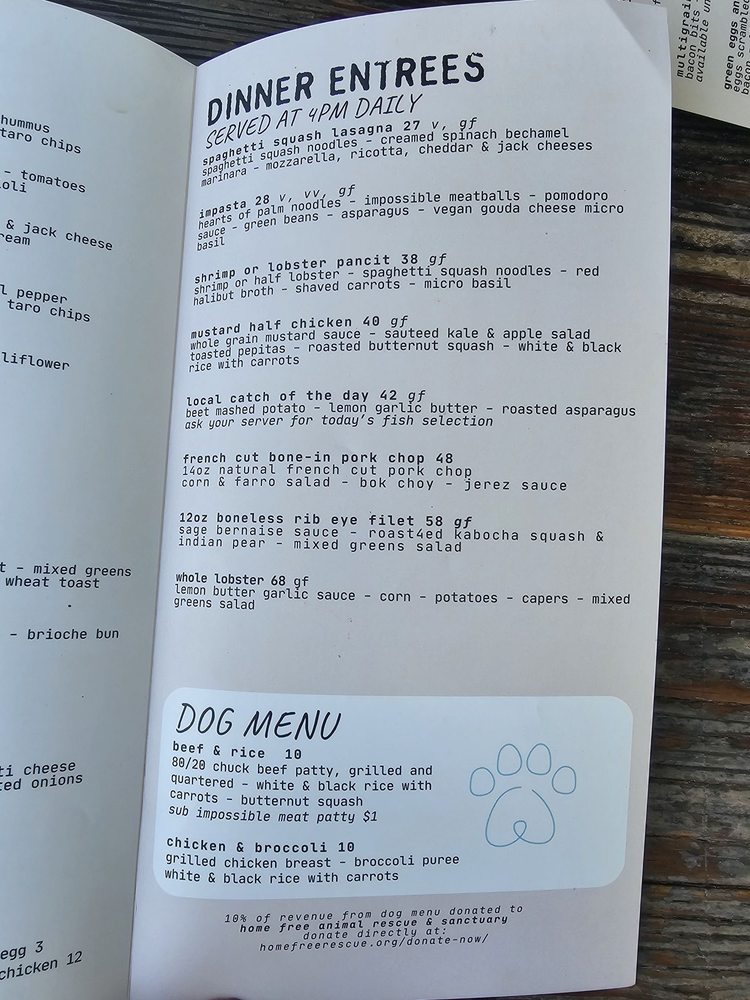 hummus
taro chips
- tomatoes
& jack cheese
l pepper
taro chips
- mixed greens
wheat toast
- brioche bun
egg 3
chicken 12
DINNER ENTREES
SERVED AT 4PM DAILY
spaghetti squash lasagna 27 v, gf
spaghetti squash noodles - creamed spinach bechamel
marinara - mozzarella, ricotta, cheddar & jack cheeses
impasta 28 v, vv, gf
hearts of palm noodles - impossible meatballs - pomodoro
sauce - green beans - asparagus - vegan gouda cheese micro
basil
shrimp or lobster pancit 38 gf
shrimp or half lobster - spaghetti squash noodles - red
halibut broth - shaved carrots - micro basil
mustard half chicken 40 gf
whole grain mustard sauce - sauteed kale & apple salad
toasted pepitas - roasted butternut squash - white & black
rice with carrots
local catch of the day 42 gf
beet mashed potato - lemon garlic butter - roasted asparagus
ask your server for today's fish selection
french cut bone-in pork chop 48
14oz natural french cut pork chop
corn & farro salad - bok choy - jerez sauce
12oz boneless rib eye filet 58 gf
sage bernaise sauce - roast4ed kabocha squash &
indian pear - mixed greens salad
whole lobster 68 gf
lemon butter garlic sauce - corn - potatoes - capers - mixed
greens salad
DOG MENU
beef & rice 10
80/20 chuck beef patty, grilled and
quartered - white & black rice with
carrots - butternut squash
sub impossible meat patty $1
chicken & broccoli 10
grilled chicken breast - broccoli puree
white & black rice with carrots
10% of revenue from dog menu donated to
home free animal rescue & sanctuary
donate directly at:
homefreerescue.org/donate-now/
multigrai
bacon bits
available un
green eggs an
eggs scrambled
bacon